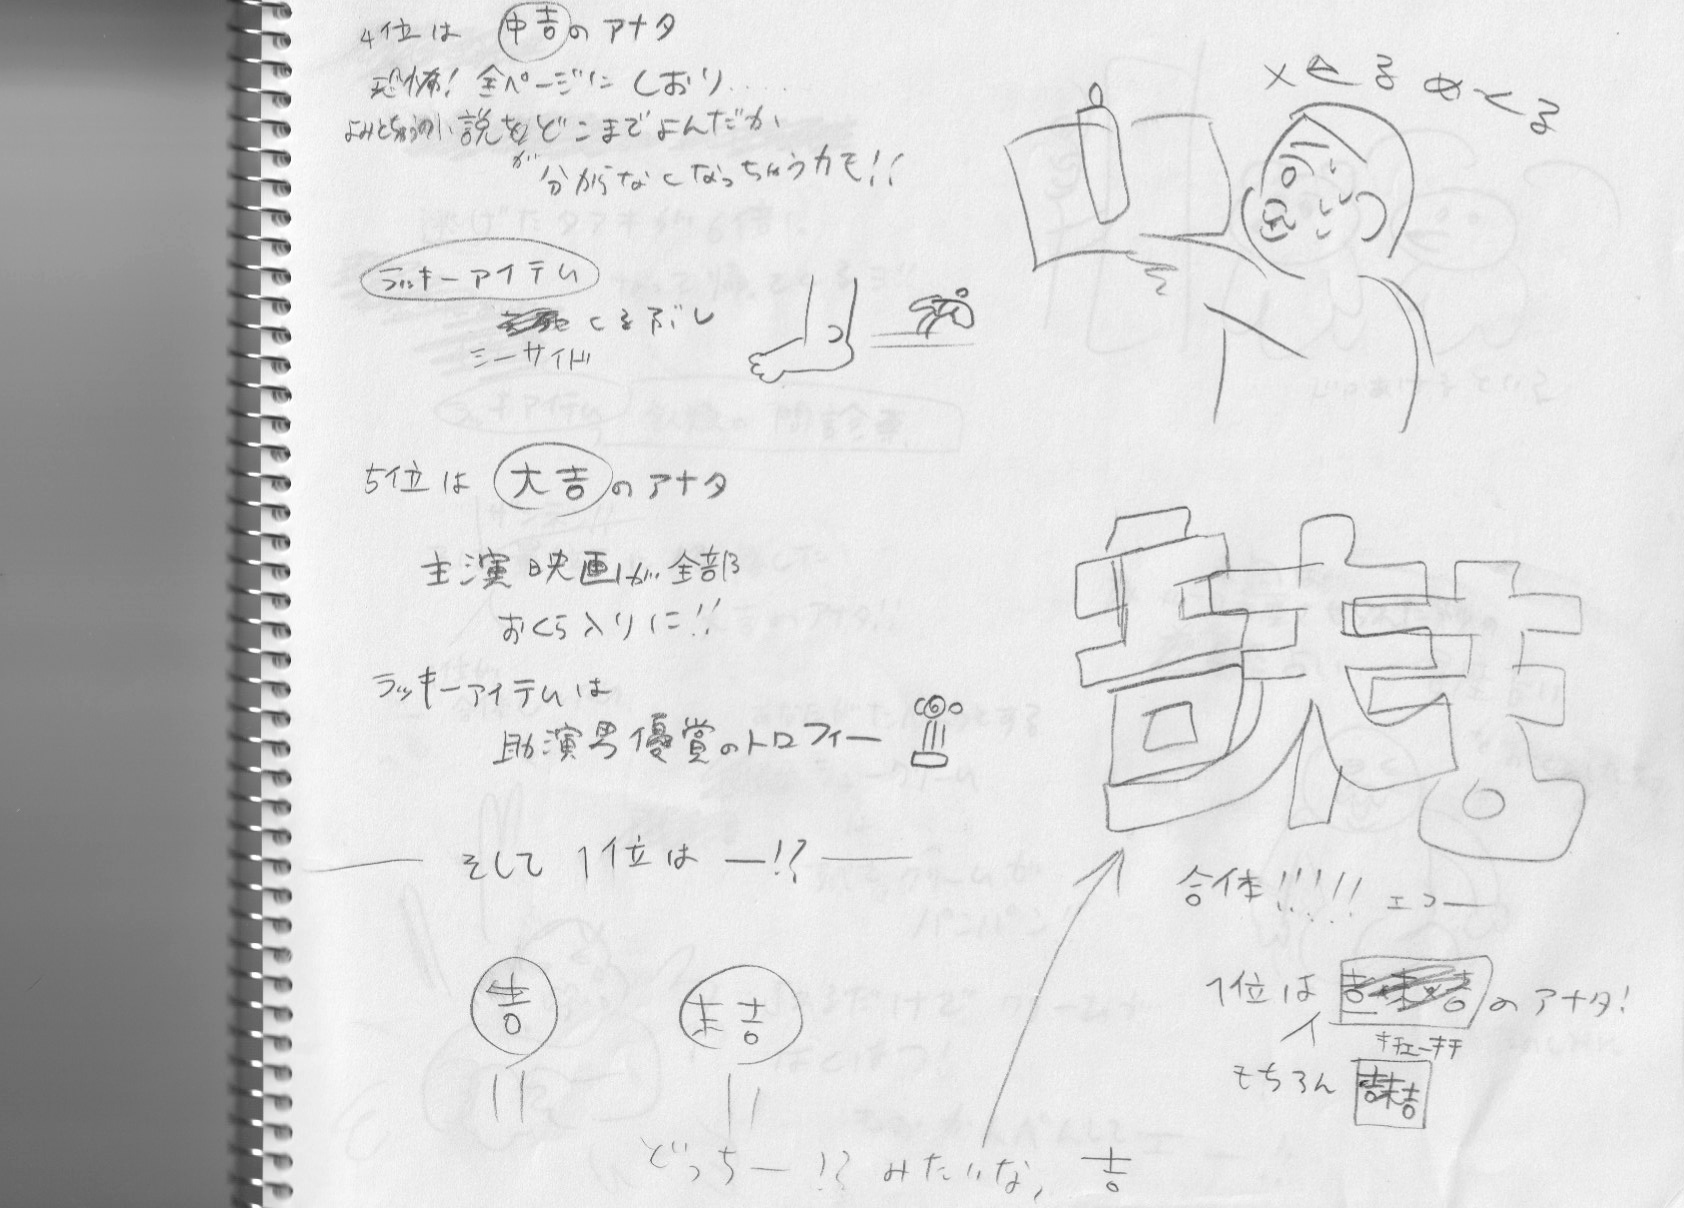 4位は 中吉のアナタ
恐怖! 全ページに しおり.....
よみとちゅうの小説をどこまでよんだか
が
分からなくなっちゃうカモ!!
ラッキーアイテム
くるぶし
シーサイド
5位は 大吉のアナタ
主演映画が全部
おくら入りに!!
ラッキーアイテムは
助演男優賞のトロフィー
そして 1位は ー!?
吉
末吉
どっちー!? みたいな、 吉
吉末吉
合体!!!!! エコー
1位は のアナタ!
キチエーキチ
もちろん 吉末吉